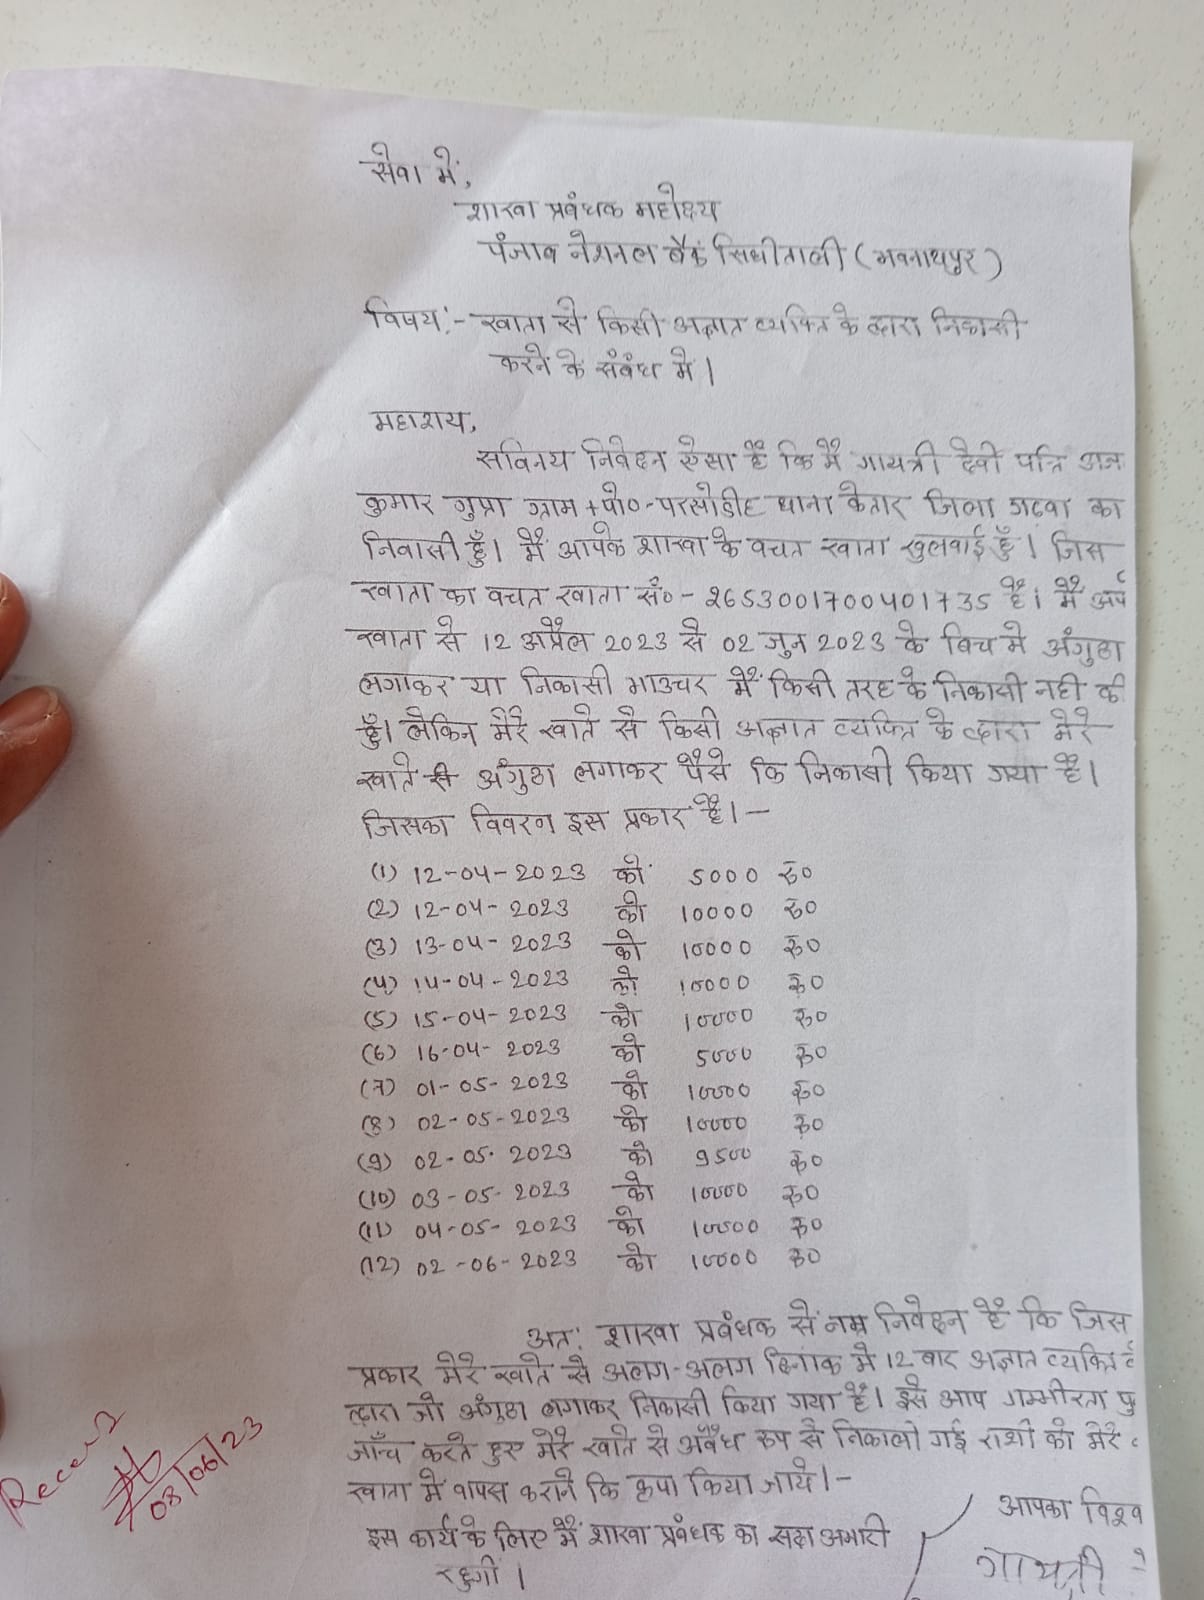 सेवा में,
शाखा प्रबंधक महोदय
पंजाब नेशनल बैंक सिधीताली (भवनाथपुर)
विषय:- खाता से किसी अज्ञात व्यक्ति के द्वारा निकासी
करने के संबंध में।
महाशय,
सविनय निवेदन ऐसा है कि मैं गायत्री देवी पति
कुमार गुप्ता ग्राम+पो०-परसोडीह थाना केतार जिला गढवा का
निवासी हूँ। मैं आपके शाखा के बचत खाता खुलवाई हूँ। जिस
खाता का बचत खाता सं०- 2653001700401735 है। मैं
खाता से 12 अप्रैल 2023 से 02 जुन 2023 के बिच मे अंगुठा
लगाकर या निकासी भाउचर में किसी तरह के निकासी नही की
हुँ। लेकिन मेरे खाते से किसी अज्ञात व्यक्ति के द्वारा मेरे
खाते से अंगुठा लगाकर पैसे कि निकासी किया गया है।
जिसका विवरण इस प्रकार है।-
(1) 12-04-2023 को 5000 रु०
(2) 12-04-2023 को 10000 रु०
(3) 13-04-2023 को 10000 रु०
(4) 14-04-2023 को 10000 रु०
(5) 15-04-2023 को 10000 रु०
(6) 16-04-2023 को 5000 रु०
(7) 01-05-2023 को 10000 रु०
(8) 02-05-2023 को 10000 रु०
(9) 02-05-2023 को 9500 रु०
(10) 03-05-2023 को 10000 रु०
(11) 04-05-2023 को 10000 रु०
(12) 02-06-2023 को 10000 रु०
अत: शाखा प्रबंधक से नम्र निवेदन है कि जिस
प्रकार मेरे खाते से अलग-अलग दिनांक मे 12 बार अज्ञात व्यक्ति
द्वारा जो अंगुठा लगाकर निकासी किया गया है। इसे आप गम्भीरता पु
जाँच करते हुए मेरे खाते से अवैध रूप से निकाली गई राशी को मेरे
खाता में वापस कराने कि कृपा किया जाये।-
इस कार्य के लिए मैं शाखा प्रबंधक का सदा अभारी
रहुगी।
आपका विश्व
गायत्री
08/06/23